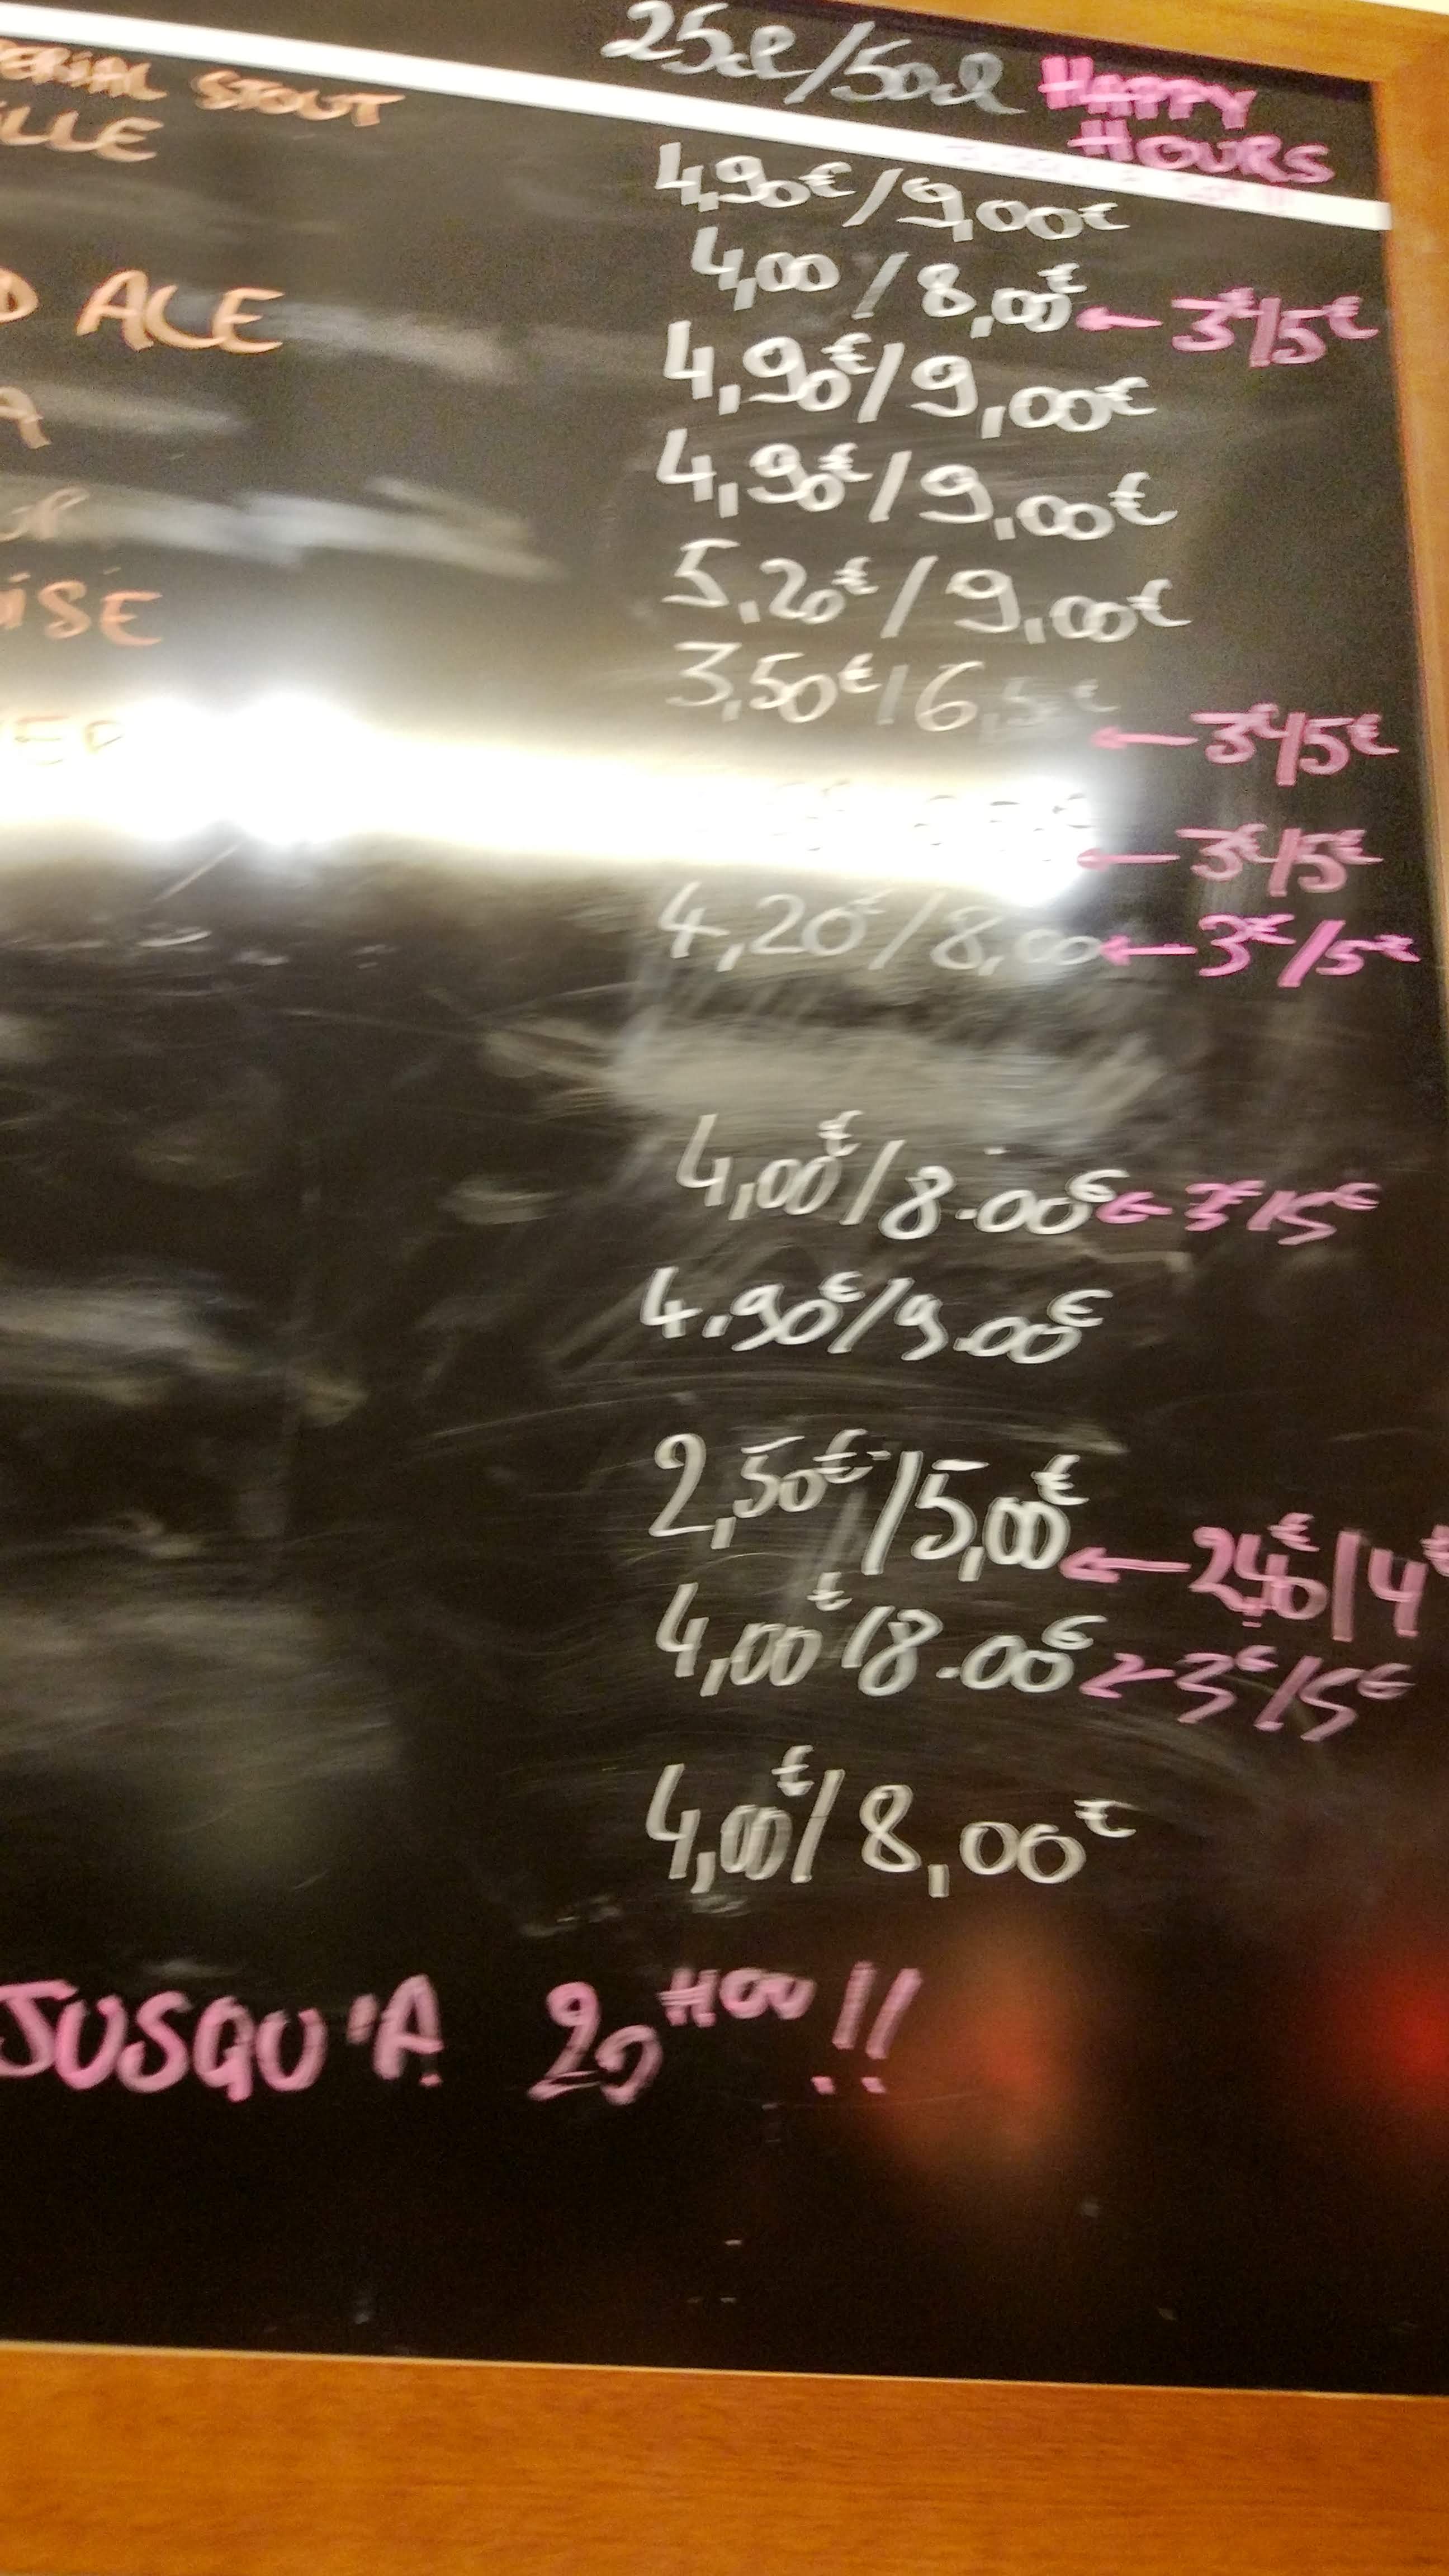 25cl/50cl HAPPY HOURS
STOUT
4,90€/9,00€
4,00/8,00€ ← 3€/5€
ALE
4,90€/9,00€
4,90€/9,00€
5,20€/9,00€
3,50€/6,5€ ← 3€/5€
← 3€/5€
4,20€/8,00 ← 3€/5€
4,00€/8.00€ ← 3€/5€
4.90€/9.00€
2,50€/5,00€ ← /4€
4,00€/8.00€ ← 3€/5€
4,00€/8,00€
JUSQU'A 20H00!!